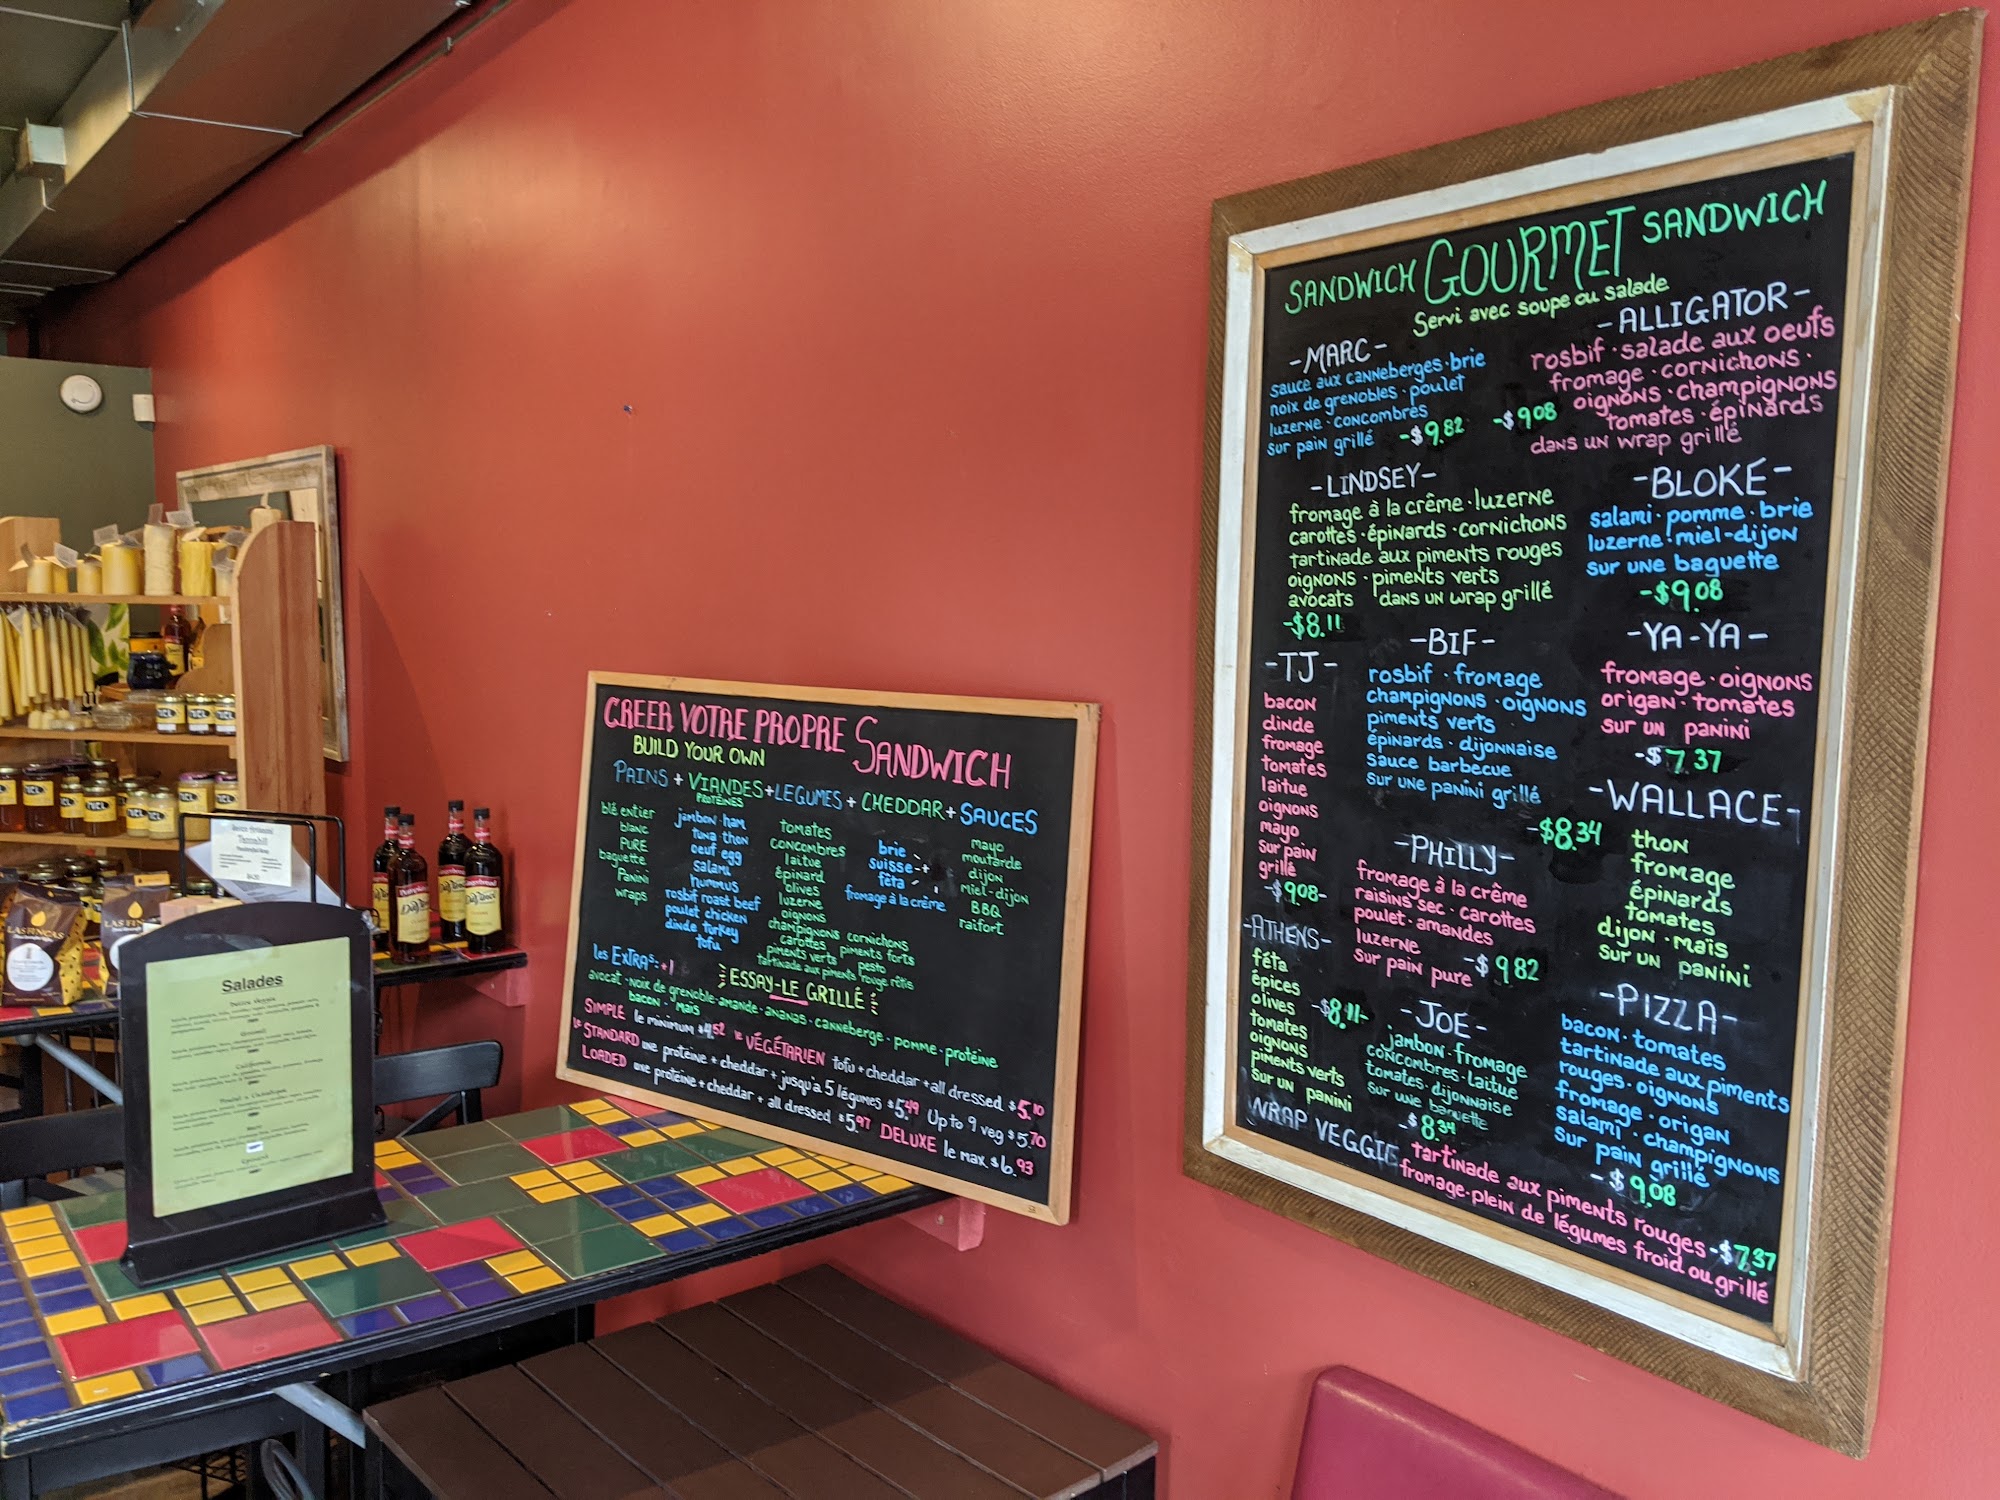 SANDWICH GOURMET SANDWICH
Servi avec soupe ou salade
-MARC-
sauce aux canneberges·brie
noix de grenobles·poulet
luzerne·concombres
sur pain grillé -$9.82
-ALLIGATOR-
rosbif·salade aux oeufs
fromage·cornichons·
oignons·champignons
tomates·épinards
dans un wrap grillé
-$9.08
-LINDSEY-
fromage à la crême·luzerne
carottes·épinards·cornichons
tartinade aux piments rouges
oignons·piments verts
avocats dans un wrap grillé
-$8.11
-BLOKE-
salami·pomme·brie
luzerne·miel-dijon
sur une baguette
-$9.08
-TJ-
bacon
dinde
fromage
tomates
laitue
oignons
mayo
sur pain
grillé
-$9.08-
-BIF-
rosbif·fromage
champignons·oignons
piments verts
épinards·dijonnaise
sauce barbecue
sur une panini grillé
-$8.34
-YA-YA-
fromage·oignons
origan·tomates
sur un panini
-$7.37
-WALLACE-
thon
fromage
épinards
tomates
dijon·maïs
sur un panini
-PHILLY-
fromage à la crême
raisins sec·carottes
poulet·amandes
luzerne
sur pain pure -$9.82
-ATHENS-
féta
épices
olives
tomates
oignons
piments verts
sur un panini
-$8.11-
-JOE-
jambon·fromage
concombres·laitue
tomates·dijonnaise
sur une baguette
-$8.34
-PIZZA-
bacon·tomates
tartinade aux piments
rouges·oignons
fromage·origan
salami·champignons
sur pain grillé
-$9.08
WRAP VEGGIE tartinade aux piments rouges -$7.37
fromage·plein de légumes froid ou grillé
CREER VOTRE PROPRE SANDWICH
BUILD YOUR OWN
PAINS + VIANDES + LEGUMES + CHEDDAR + SAUCES
PROTÉINES
blé entier
blanc
PURE
baguette
Panini
wraps
jambon·ham
tuna thon
oeuf·egg
salami
hummus
rosbif roast beef
poulet chicken
dinde turkey
tofu
tomates
concombres
laitue
épinard
olives
luzerne
oignons
champignons cornichons
carottes piments forts
piments verts pesto
tartinade aux piments rouge rôtis
brie
suisse +1
fêta
fromage à la crême
mayo
moutarde
dijon
miel-dijon
BBQ
raifort
les EXTRAS: +1
ESSAY-LE GRILLÉ
avocat·noix de grenoble·amande·ananas·canneberge·pomme·protéine
bacon·maïs
SIMPLE le minimum $4.52 le VÉGÉTARIEN tofu + cheddar + all dressed $5.10
le STANDARD une protéine + cheddar + jusqu'a 5 légumes $5.49 Up to 9 veg $5.70
LOADED une protéine + cheddar + all dressed $5.97 DELUXE le max $6.93
Salades
LAS FINCAS
LAS FINCAS
DaVinci
DaVinci